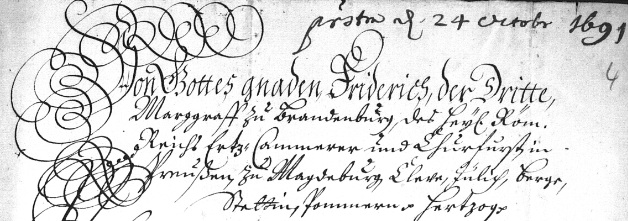 24 octobr 1691
4
Von Gottes gnaden, Friderich, der Dritte,
Marggraff zu Brandenburg, des heyl. Röm.
Reichs Ertz-Cammerer und Churfürst in
Preußen, zu Magdeburg, Cleve, Jülich, Berge,
Stettin, Pommern p Hertzog p